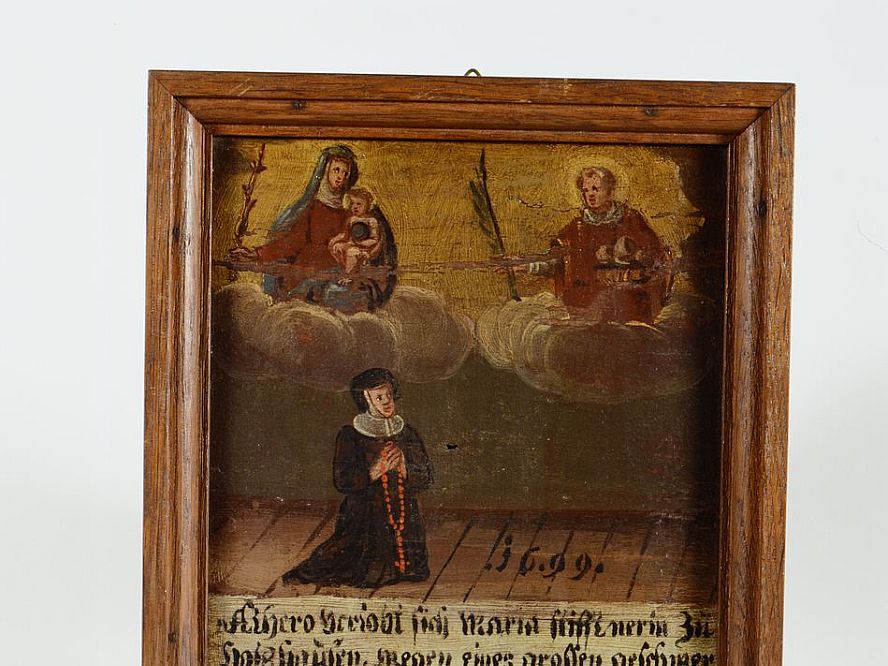 .1699.
Alhero Verlobt sich Maria stifftnerin Zu
Holzhausen, wegen eines grossen geschwer